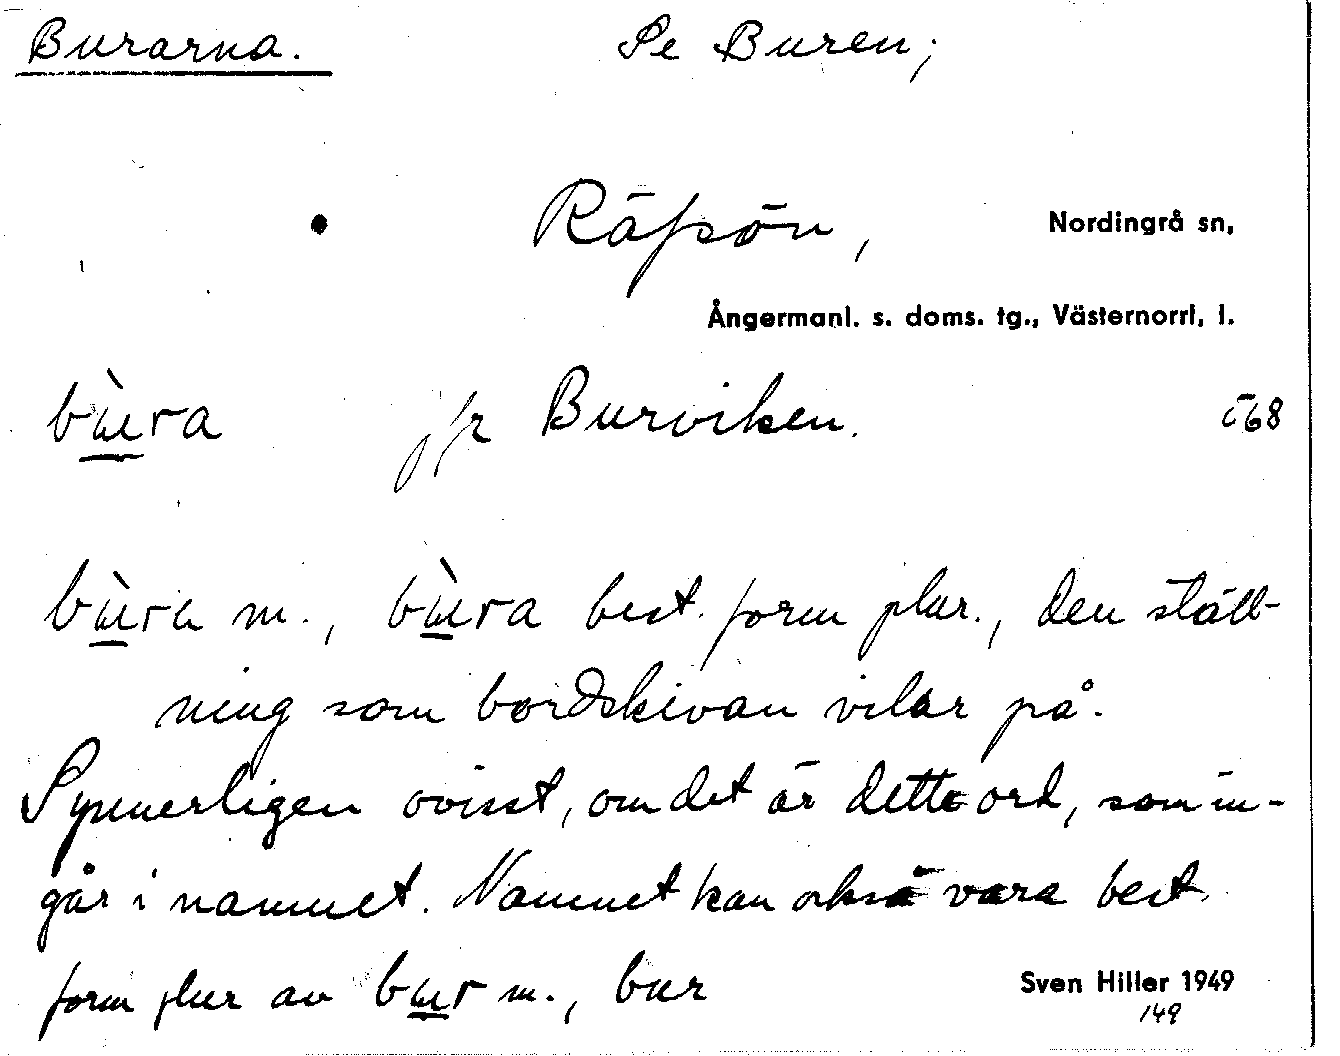 Burarna. Se Buren;
Räfsön, Nordingrå sn,
Ångermanl. s. doms. tg., Västernorrl, l.
bùra jfr Burviken. ö68
bùra m., bùra best. form plur., den ställ-
ning som bordskivan vilar på.
Synnerligen ovisst, om det är detta ord, som in-
går i namnet. Namnet kan också vara best.
form plur av bur m., bur
Sven Hiller 1949
149